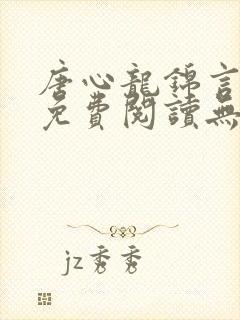 唐心龍錦言
免費閱讀無
jz秀秀